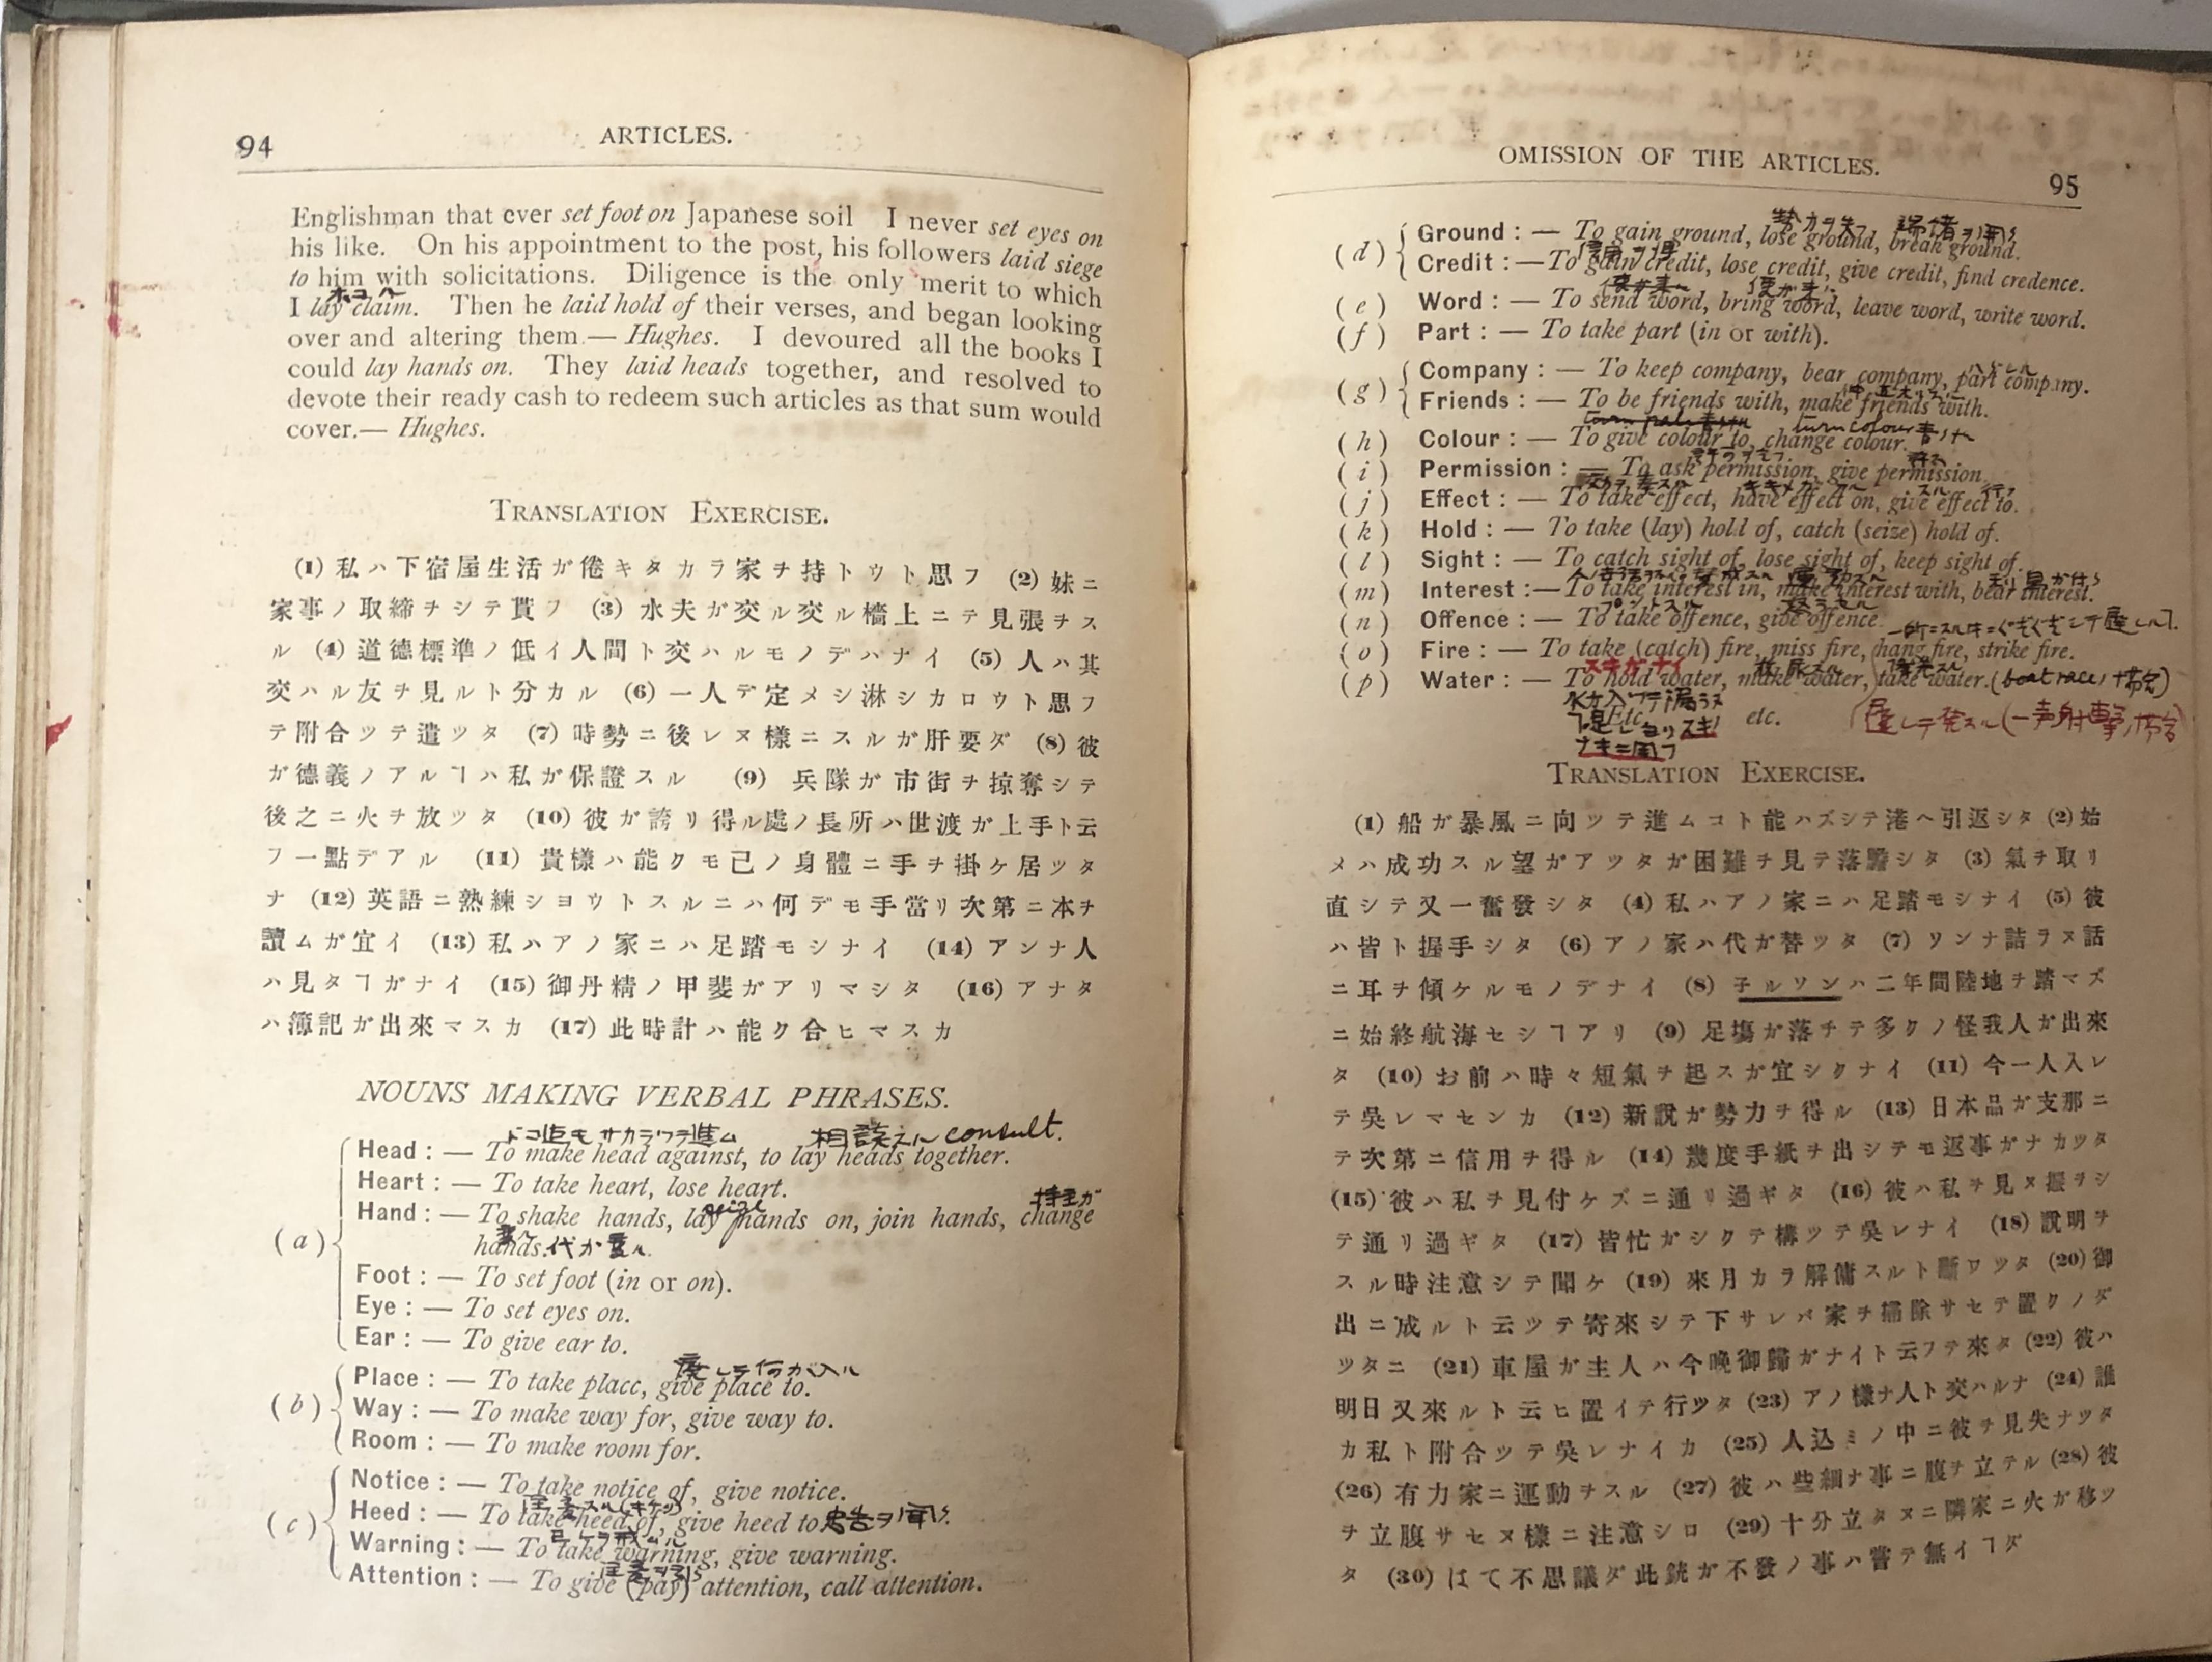 94
ARTICLES.
Englishman that ever set foot on Japanese soil I never set eyes on
his like. On his appointment to the post, his followers laid siege
to him with solicitations. Diligence is the only merit to which
I lay claim. Then he laid hold of their verses, and began looking
over and altering them.— Hughes. I devoured all the books I
could lay hands on. They laid heads together, and resolved to
devote their ready cash to redeem such articles as that sum would
cover.— Hughes.
TRANSLATION EXERCISE.
(1) 私ハ下宿屋生活ガ倦キタカラ家ヲ持トウト思フ (2) 妹ニ
家事ノ取締ヲシテ貰フ (3) 水夫ガ交ル交ル檣上ニテ見張ヲス
ル (4) 道德標準ノ低イ人間ト交ハルモノデハナイ (5) 人ハ其
交ハル友ヲ見ルト分カル (6) 一人デ定メシ淋シカロウト思フ
テ附合ツテ遣ツタ (7) 時勢ニ後レヌ樣ニスルガ肝要ダ (8) 彼
ガ德義ノアルヿハ私ガ保證スル (9) 兵隊ガ市街ヲ掠奪シテ
後之ニ火ヲ放ツタ (10) 彼ガ誇リ得ル處ノ長所ハ世渡ガ上手ト云
フ一點デアル (11) 貴樣ハ能クモ己ノ身體ニ手ヲ掛ケ居ツタ
ナ (12) 英語ニ熟練シヨウトスルニハ何デモ手當リ次第ニ本ヲ
讀ムガ宜イ (13) 私ハアノ家ニハ足踏モシナイ (14) アンナ人
ハ見タヿガナイ (15) 御丹精ノ甲斐ガアリマシタ (16) アナタ
ハ簿記ガ出來マスカ (17) 此時計ハ能ク合ヒマスカ
NOUNS MAKING VERBAL PHRASES.
相談スル consult.
(a) Head : — To make head against, to lay heads together.
Heart : — To take heart, lose heart.
seize
Hand : — To shake hands, lay hands on, join hands, change
hands.
Foot : — To set foot (in or on).
Eye : — To set eyes on.
Ear : — To give ear to.
(b) Place : — To take place, give place to.
Way : — To make way for, give way to.
Room : — To make room for.
(c) Notice : — To take notice of, give notice.
Heed : — To take heed of, give heed to 忠告ヲ
Warning : — To take warning, give warning.
Attention : — To give (pay) attention, call attention.
OMISSION OF THE ARTICLES.
95
(d) Ground : — To gain ground, lose ground, break ground.
Credit : — To gain credit, lose credit, give credit, find credence.
(e) Word : — To send word, bring word, leave word, write word.
(f) Part : — To take part (in or with).
(g) Company : — To keep company, bear company, part company.
Friends : — To be friends with, make friends with.
turn pale turn colour
(h) Colour : — To give colour to, change colour.
(i) Permission : — To ask permission, give permission.
(j) Effect : — To take effect, have effect on, give effect to.
(k) Hold : — To take (lay) hold of, catch (seize) hold of.
(l) Sight : — To catch sight of, lose sight of, keep sight of.
(m) Interest : — To take interest in, make interest with, bear interest.
(n) Offence : — To take offence, give offence.
(o) Fire : — To take (catch) fire, miss fire, hang fire, strike fire.
スキガナイ
(p) Water : — To hold water, make water, take water. (boat race
Etc. etc.
TRANSLATION EXERCISE.
(1) 船ガ暴風ニ向ツテ進ムコト能ハズシテ港ヘ引返シタ (2) 始
メハ成功スル望ガアツタガ困難ヲ見テ落膽シタ (3) 氣ヲ取リ
直シテ又一奮發シタ (4) 私ハアノ家ニハ足踏モシナイ (5) 彼
ハ皆ト握手シタ (6) アノ家ハ代ガ替ツタ (7) ソンナ詰ラヌ話
ニ耳ヲ傾ケルモノデナイ (8) 子ルソンハ二年間陸地ヲ踏マズ
ニ始終航海セシヿアリ (9) 足塲ガ落チテ多クノ怪我人ガ出來
タ (10) お前ハ時々短氣ヲ起スガ宜シクナイ (11) 今一人入レ
テ吳レマセンカ (12) 新說ガ勢力ヲ得ル (13) 日本品ガ支那ニ
テ次第ニ信用ヲ得ル (14) 幾度手紙ヲ出シテモ返事ガナカツタ
(15) 彼ハ私ヲ見付ケズニ通リ過ギタ (16) 彼ハ私ヲ見ヌ振ヲシ
テ通リ過ギタ (17) 皆忙ガシクテ構ツテ吳レナイ (18) 說明ヲ
スル時注意シテ聞ケ (19) 來月カラ解傭スルト斷ワツタ (20) 御
出ニ成ルト云ツテ寄來シテ下サレバ家ヲ掃除サセテ置クノダ
ツタニ (21) 車屋ガ主人ハ今晩御歸ガナイト云フテ來タ (22) 彼ハ
明日又來ルト云ヒ置イテ行ツタ (23) アノ樣ナ人ト交ハルナ (24) 誰
カ私ト附合ツテ吳レナイカ (25) 人込ミノ中ニ彼ヲ見失ナツタ
(26) 有力家ニ運動ヲスル (27) 彼ハ些細ナ事ニ腹ヲ立テル (28) 彼
ヲ立腹サセヌ樣ニ注意シロ (29) 十分立タヌニ隣家ニ火ガ移ツ
タ (30) はて不思議ダ此銃ガ不發ノ事ハ嘗テ無イヿダ